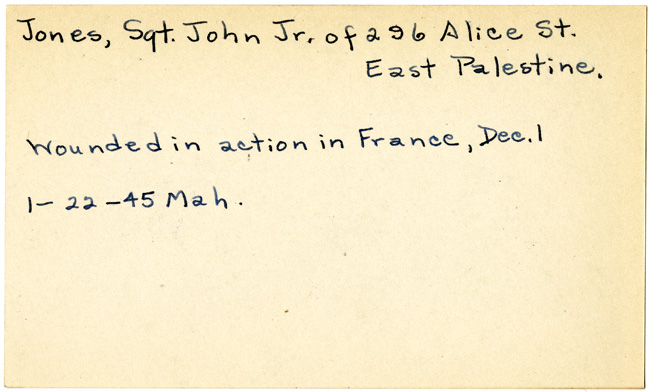 Jones, Sgt. John Jr. of 296 Alice St.
East Palestine.
Wounded in action in France, Dec. 1
1-22-45 Mah.